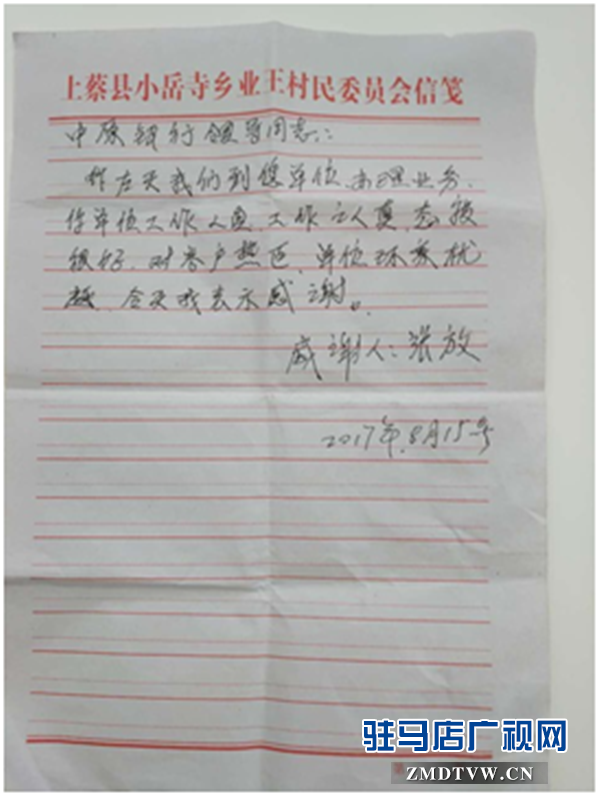 上蔡县小岳寺乡业王村民委员会信笺
中原银行领导同志:
昨左天我们到您单位办理业务.
你单位工作人员,工作认真,态度
很好,对客户热医,单位环教优
越、今天我表示感谢。
感谢人:张放
2017年.8月15号
驻马店广视网
第
ZMDTVW.CN